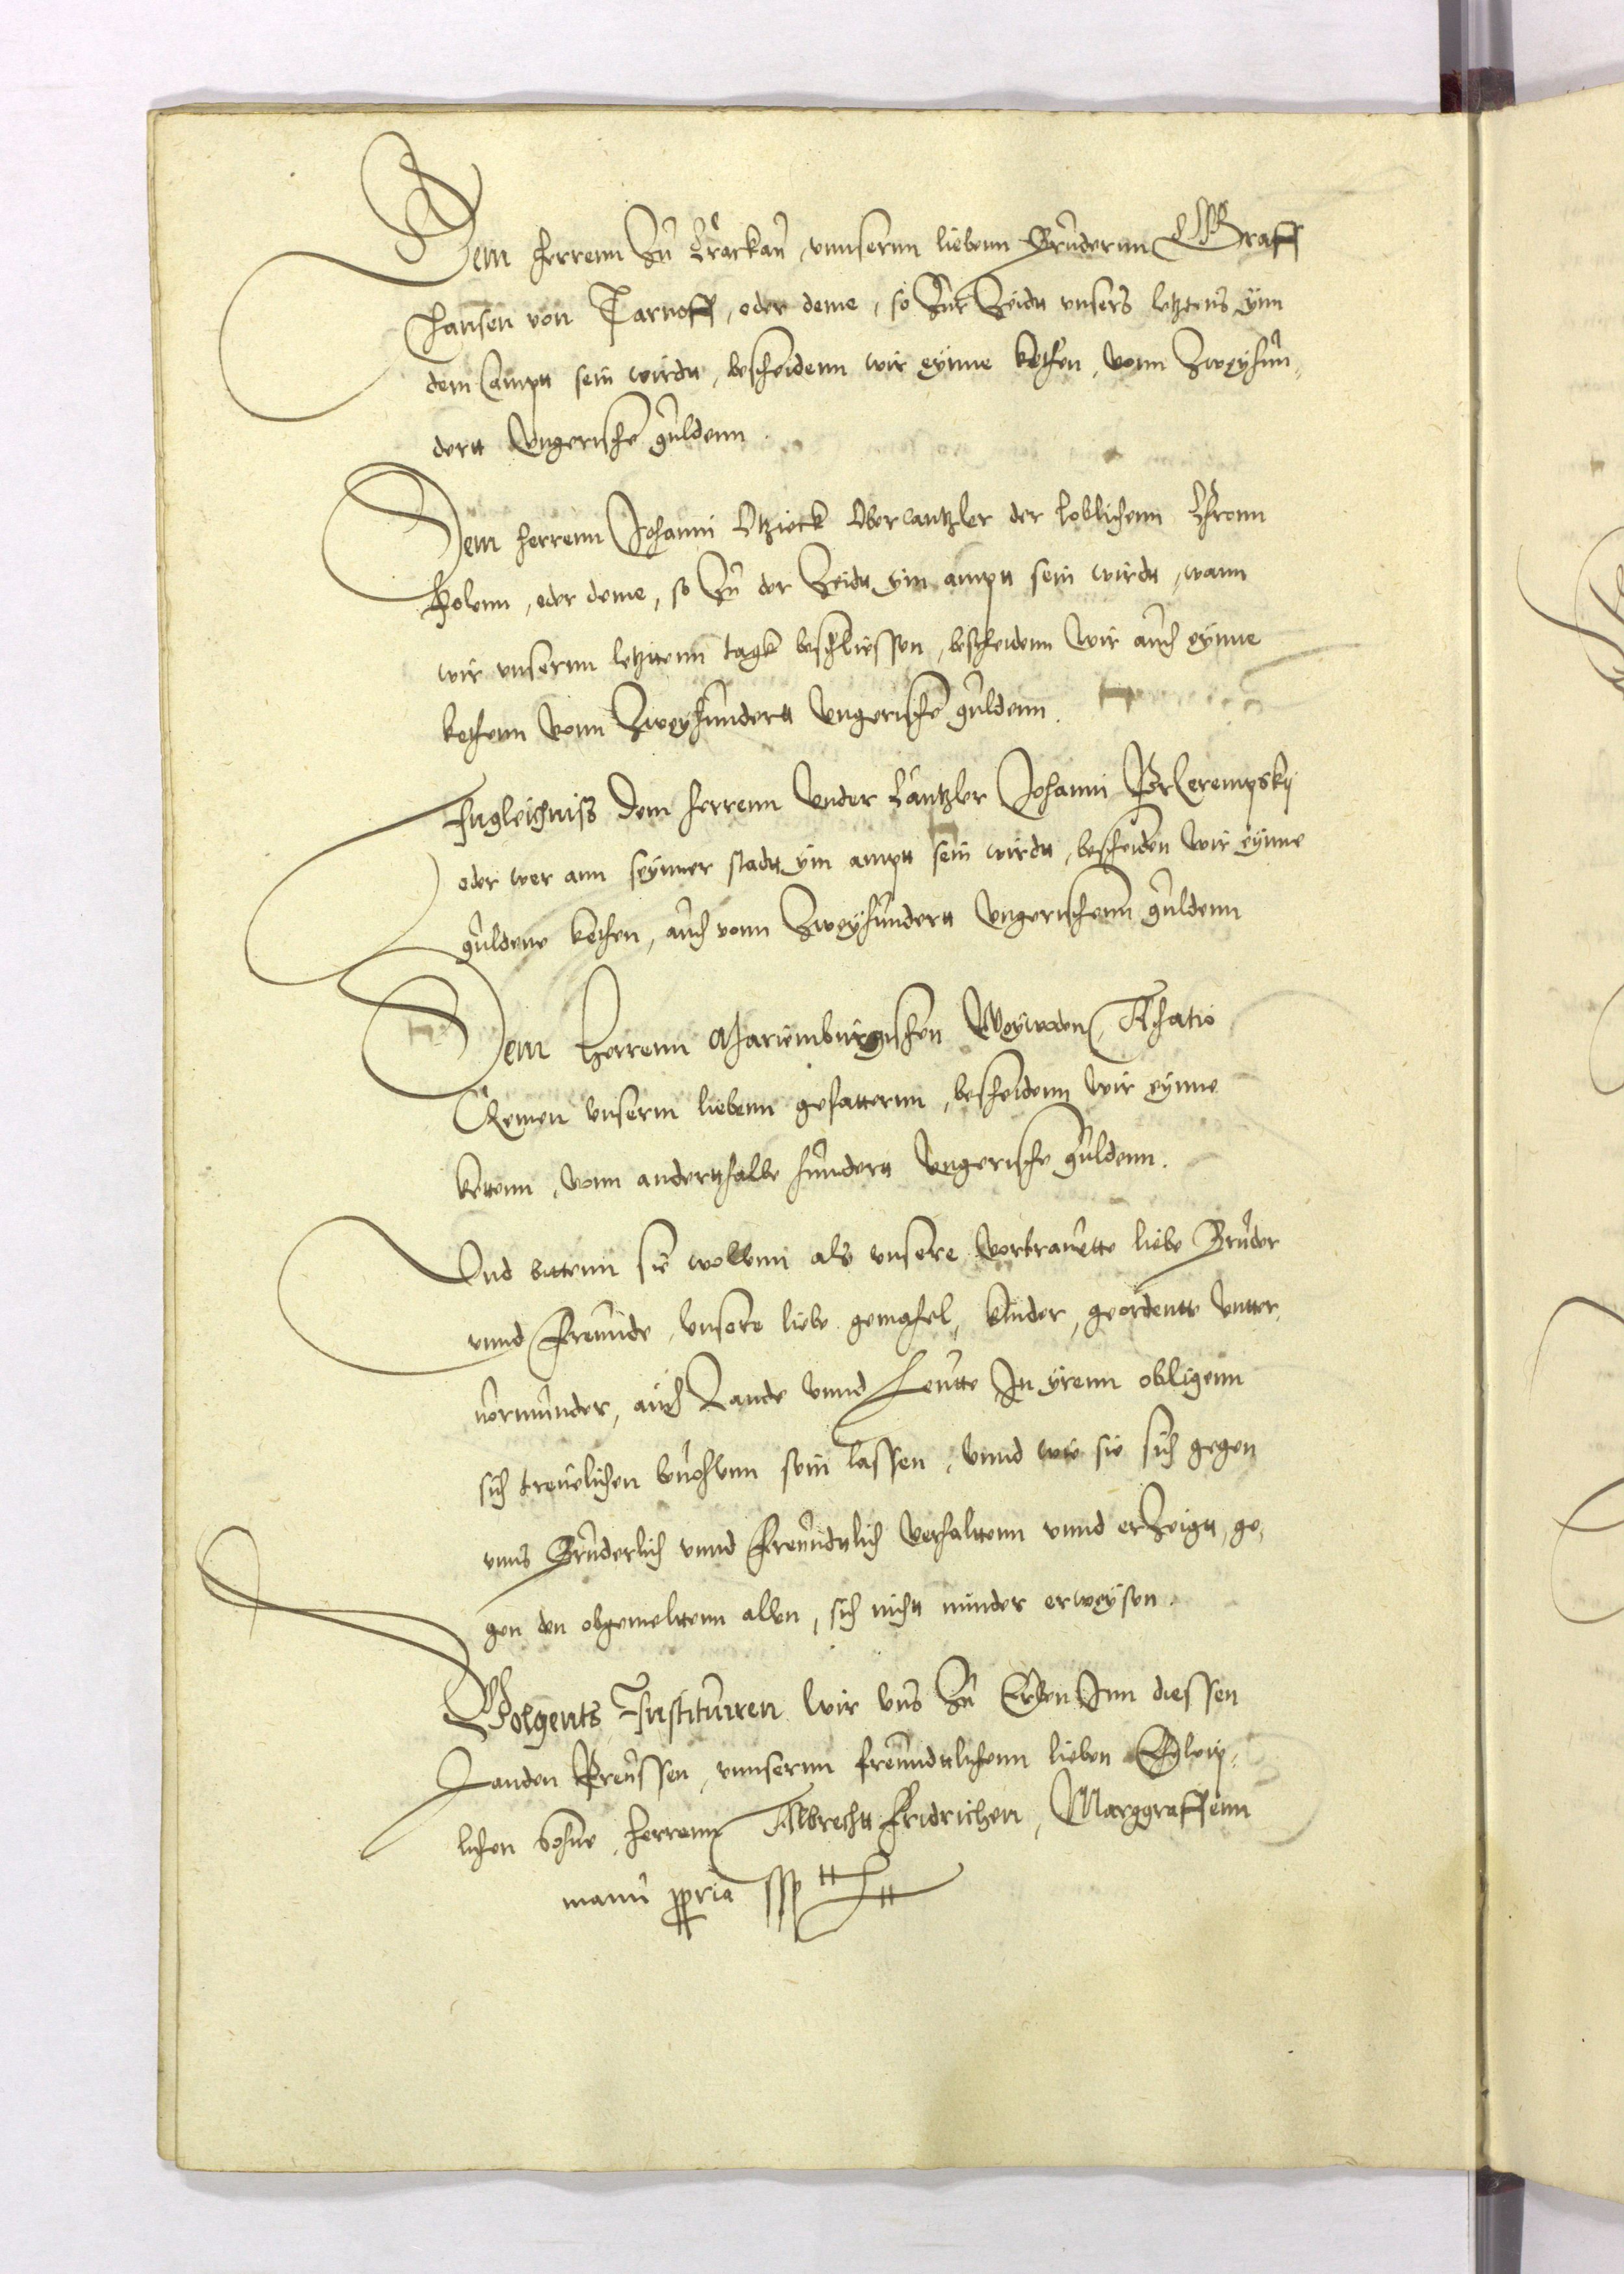 Dem herrenn Zu Crackau, unnserm liebenn Brudernn Graff
Hansen von Tarnoff, oder deme, so Zur Zeidtt unsers letztens ynn
dem Camptt sein wirdtt, bescheidenn wir eynne kethen, vonn Zweyhun,
dertt Ungerische guldenn.
Dem herrenn Johanni Otzieck Obercantzler der loblichenn Chronn
Polenn, oder deme, so Zu der Zeidtt ym amptt sein wirdtt, wann
wir unsernn letzttenn tagk beschliessen, bescheidenn wir auch eynne
kethenn vonn Zweyhundertt Ungerische guldenn.
Ingleichniss dem herrenn Under Cantzler Johanni Prcerempsky
oder wer ann seynner stadtt ym amptt sein wirdtt, bescheiden wir eynne
guldene kethen, auch vonn Zweyhundertt Ungerischenn guldenn
Dem Herrenn Marienburgischen Weywoden, Achatio
Cemen unserm liebenn gefatternn, bescheidenn wir eynne
kettenn, vonn andertthalbe hundertt Ungerische guldenn.
Und bittenn sie wollenn als unsere vortrauette liebe Bruder
unnd Freunde, unsere liebe gemahel, kinder, geordentte Untter,
vormunder, auch Lande unnd Leutte In yrenn obligenn
sich treuelichen bevohlenn sein lassen, unnd wie sie sich gegen
unns Bruderlich unnd Freundtlich verhalttenn unnd erZeigtt, ge,
gen den obgemelttenn allen, sich nichtt minder erweysen.
Volgents Instituiren wir uns Zu Erben Inn diessen
Landen Preussen, unnserm freundtlichenn lieben Ehleip,
lichen Sohne, herrenn Albrechtt Fridrichen, Marggraffenn
manu ppria sspt